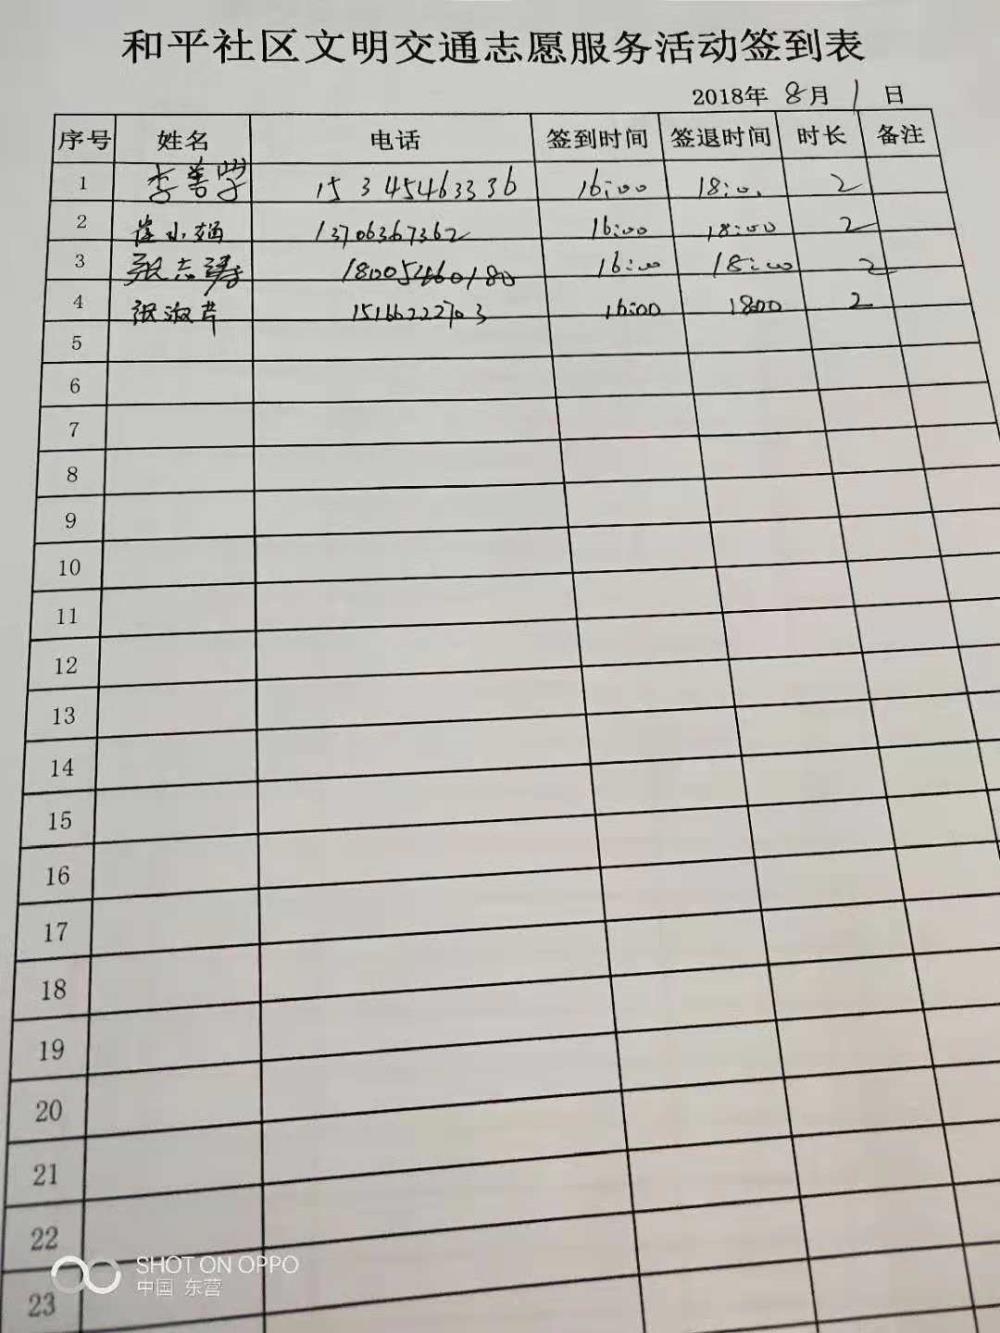 和平社区文明交通志愿服务活动签到表
2018年 8月 1 日
序号 姓名 电话 签到时间 签退时间 时长 备注
1 李善学 15345463336 16:00 18:00 2
2 崔小 13706367362 16:00 18:00 2
3 张志 18005460180 16:00 18:00 2
4 张淑芹 15166222703 16:00 1800 2
5
6
7
8
9
10
11
12
13
14
15
16
17
18
19
20
21
22
23
SHOT ON OPPO
中国 东营